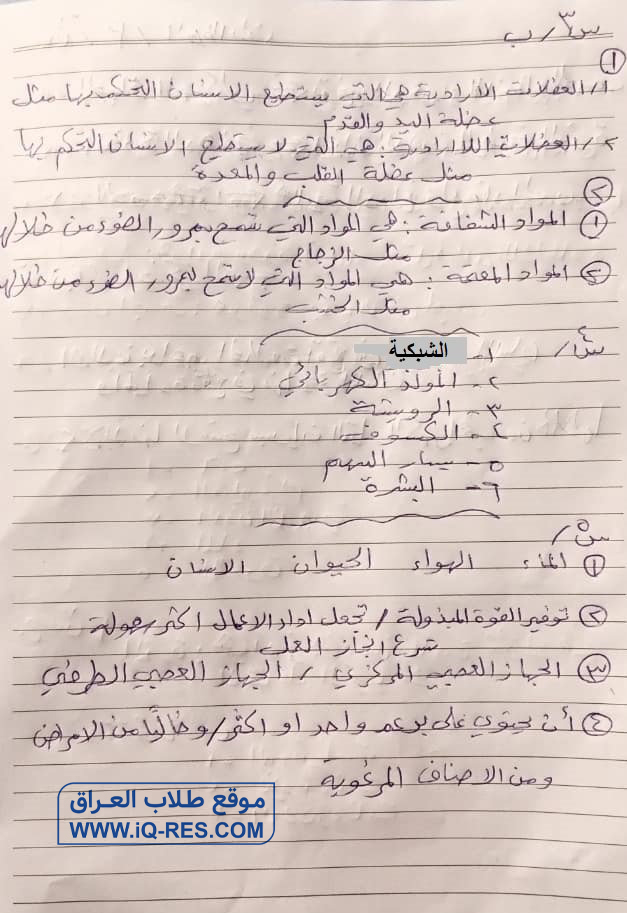 س٣/ب
①
١/ العضلات الأرادية هي التي يستطيع الانسان التحكم بها مثل
عضلة اليد والقدم
٢/ العضلات اللاارادية : هي التي لا يستطيع الانسان التحكم بها
مثل عضلة القلب والمعدة
②
① المواد الشفافة : هي المواد التي تسمح بمرور الضوء من خلالها
مثل الزجاج
② المواد المعتمة : هي المواد التي لا تسمح بمرور الضوء من خلالها
مثل الخشب
س٤/
١- الشبكية
٢- المولد الكهربائي
٣- الرويشة
٤- الكسوف
٥- مسار السهم
٦- البشرة
س٥/
① الماء الهواء الحيوان الانسان
② توفير القوة المبذولة / تجعل اداء الاعمال اكثر سهولة
تسرع انجاز العمل
③ الجهاز العصبي المركزي / الجهاز العصبي الطرفي
④ أن يحتوي على برعم واحد او اكثر / وخاليًا من الامراض
ومن الاصناف المرغوبة
موقع طلاب العراق
WWW.iQ-RES.COM